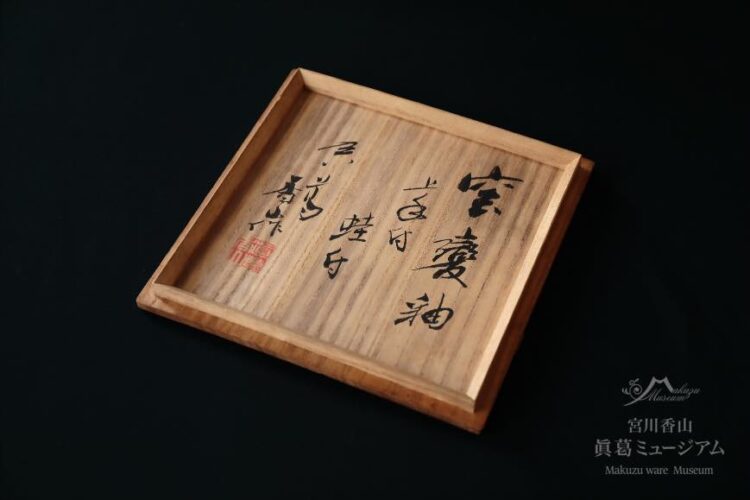 窯變釉
付
蛙付
真葛
香山作
Makuzu
Museum
宮川香山
眞葛ミュージアム
Makuzu ware Museum